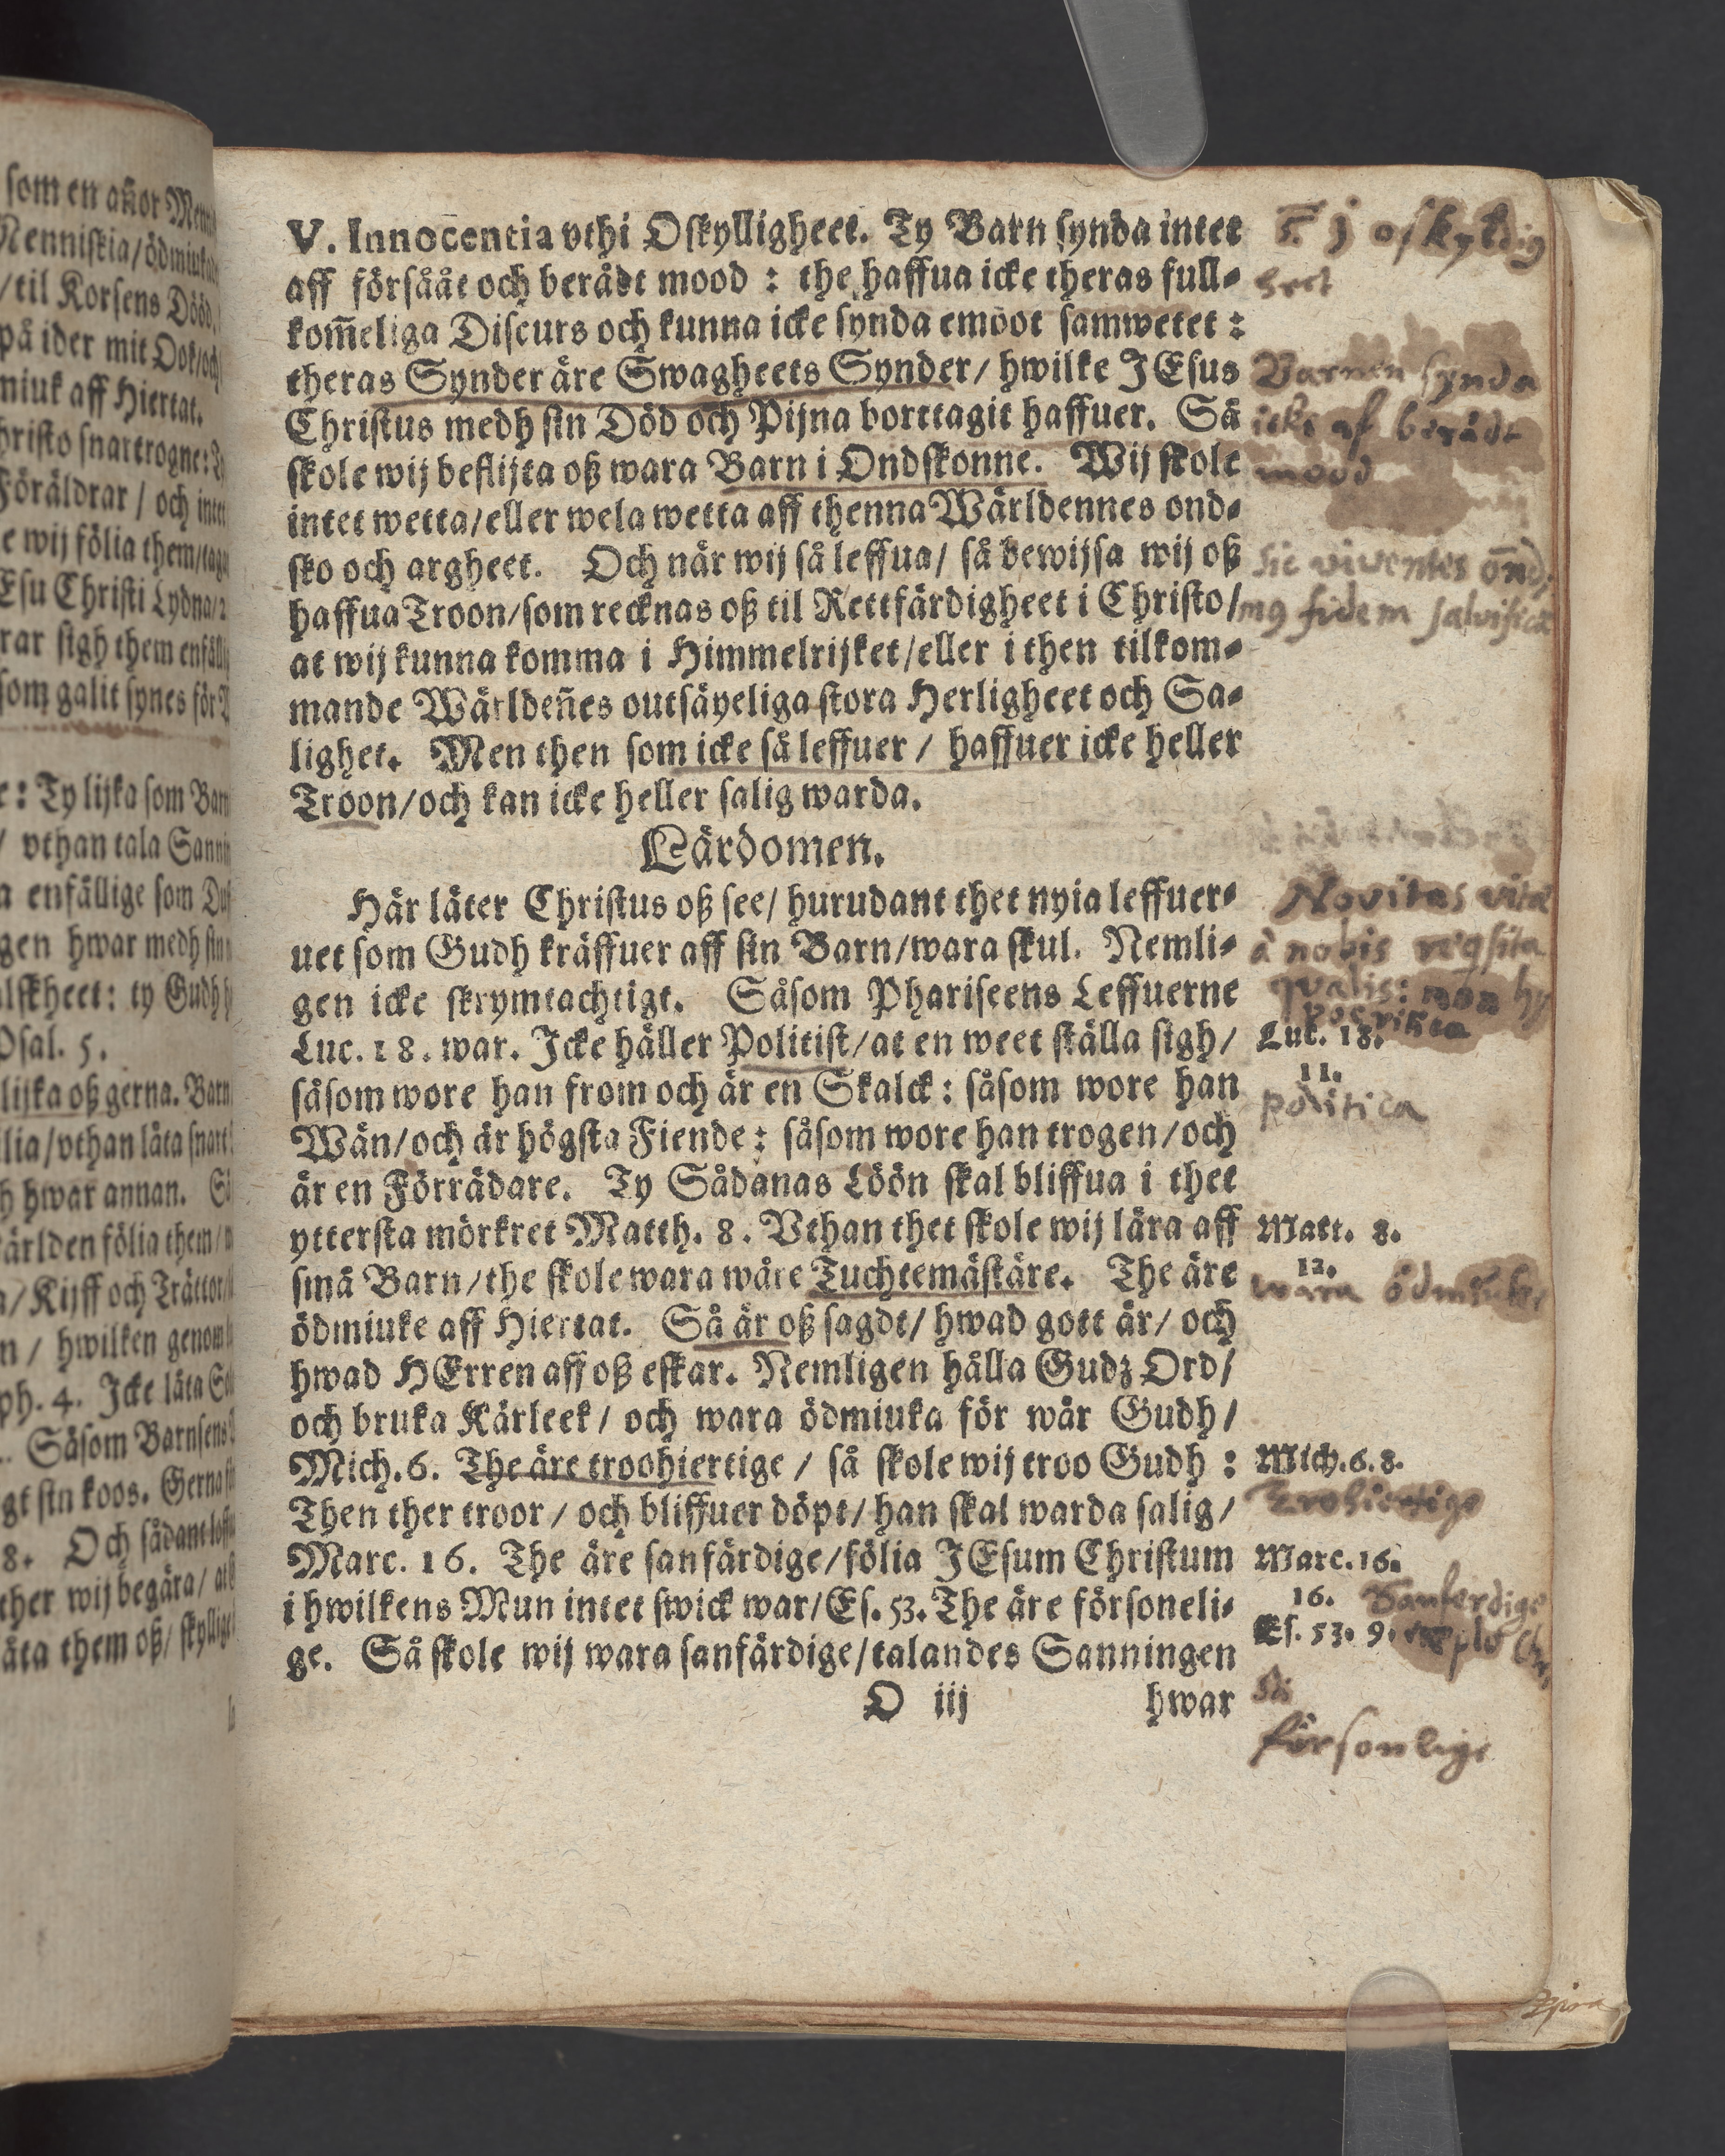 som en añor
Nenniskia/ödmiuka
/til Korsens Dööd.
på ider mit Ook/och
miuk aff Hiertat.
hristo snartrogne:
Föräldrar / och intet
e wij fölia them/
Esu Christi Lydna/
rar sigh them enfäl
som galit synes för
e: Ty lijka som Bar
/ vthan tala Sann
a enfällige som Du
gen hwar medh sin
lskheet: ty Gudh
Psal. 5.
lijka oß gerna. Barn
lia/vthan låta snart
h hwar annan. Så
ärlden fölia them/
/Kijff och Trättor/
n / hwilken genom
ph. 4. Icke låta
. Såsom Barnsens
gt sin koos. Gerna
8. Och sådant
ther wij begära/ at
åta them oß/ skyllige
V. Innocentia vthi Oskylligheet. Ty Barn synda intet
aff försååt och berådt mood : the haffua icke theras full-
kom̃eliga Discurs och kunna icke synda emoot samwetet :
theras Synder äre Swagheets Synder/ hwilke JEsus
Christus medh sin Död och Pijna borttagit haffuer. Så
skole wij beflijta oß wara Barn i Ondskonne. Wij skole
intet wetta/eller wela wetta aff thenna Wärldennes ond-
sko och argheet. Och när wij så leffua/ så bewijsa wij oß
haffua Troon/som recknas oß til Rettfärdigheet i Christo/
at wij kunna komma i Himmelrijket/eller i then tilkom-
mande Wärldeñes outsäyeliga stora Herligheet och Sa-
lighet. Men then som icke så leffuer / haffuer icke heller
Troon/och kan icke heller salig warda.
Lärdomen.
Här låter Christus oß see/ hurudant thet nyia leffuer-
uet som Gudh kräffuer aff sin Barn/wara skul. Nemli-
gen icke skrymtachtigt. Såsom Phariseens Leffuerne
Luc. 18. war. Icke håller Politist/at en weet ställa sigh/
såsom wore han from och är en Skalck : såsom wore han
Wän/och är högsta Fiende : såsom wore han trogen/och
är en Förrädare. Ty Sådanas Löön skal bliffua i thet
yttersta mörkret Matth. 8. Vthan thet skole wij lära aff
små Barn/the skole wara wåre Tuchtemästäre. The äre
ödmiuke aff Hiertat. Så är oß sagdt/ hwad gott är/ och
hwad HErren aff oß eskar. Nemligen hålla Gudz Ord/
och bruka Kärleek/ och wara ödmiuka för wår Gudh/
Mich. 6. The äre troohiertige / så skole wij troo Gudh :
Then ther troor / och bliffuer döpt/ han skal warda salig/
Marc. 16. The äre sanfärdige/fölia JEsum Christum
i hwilkens Mun intet swick war/Es. 53. The äre försoneli-
ge. Så skole wij wara sanfärdige/talandes Sanningen
O iij
hwar
5. j oskyldig
heet
Barnen synda
icke af berådt
mood
Sic viventes
fidem
Novitas vitæ
à nobis
qvalis: non hy
Luc. 18.
11.
politica
Matt. 8.
12.
wara ödmiuke
Mich. 6. 8.
trohiertige
Marc. 16.
16.
Sanferdige
Es. 53. 9.
försonlige